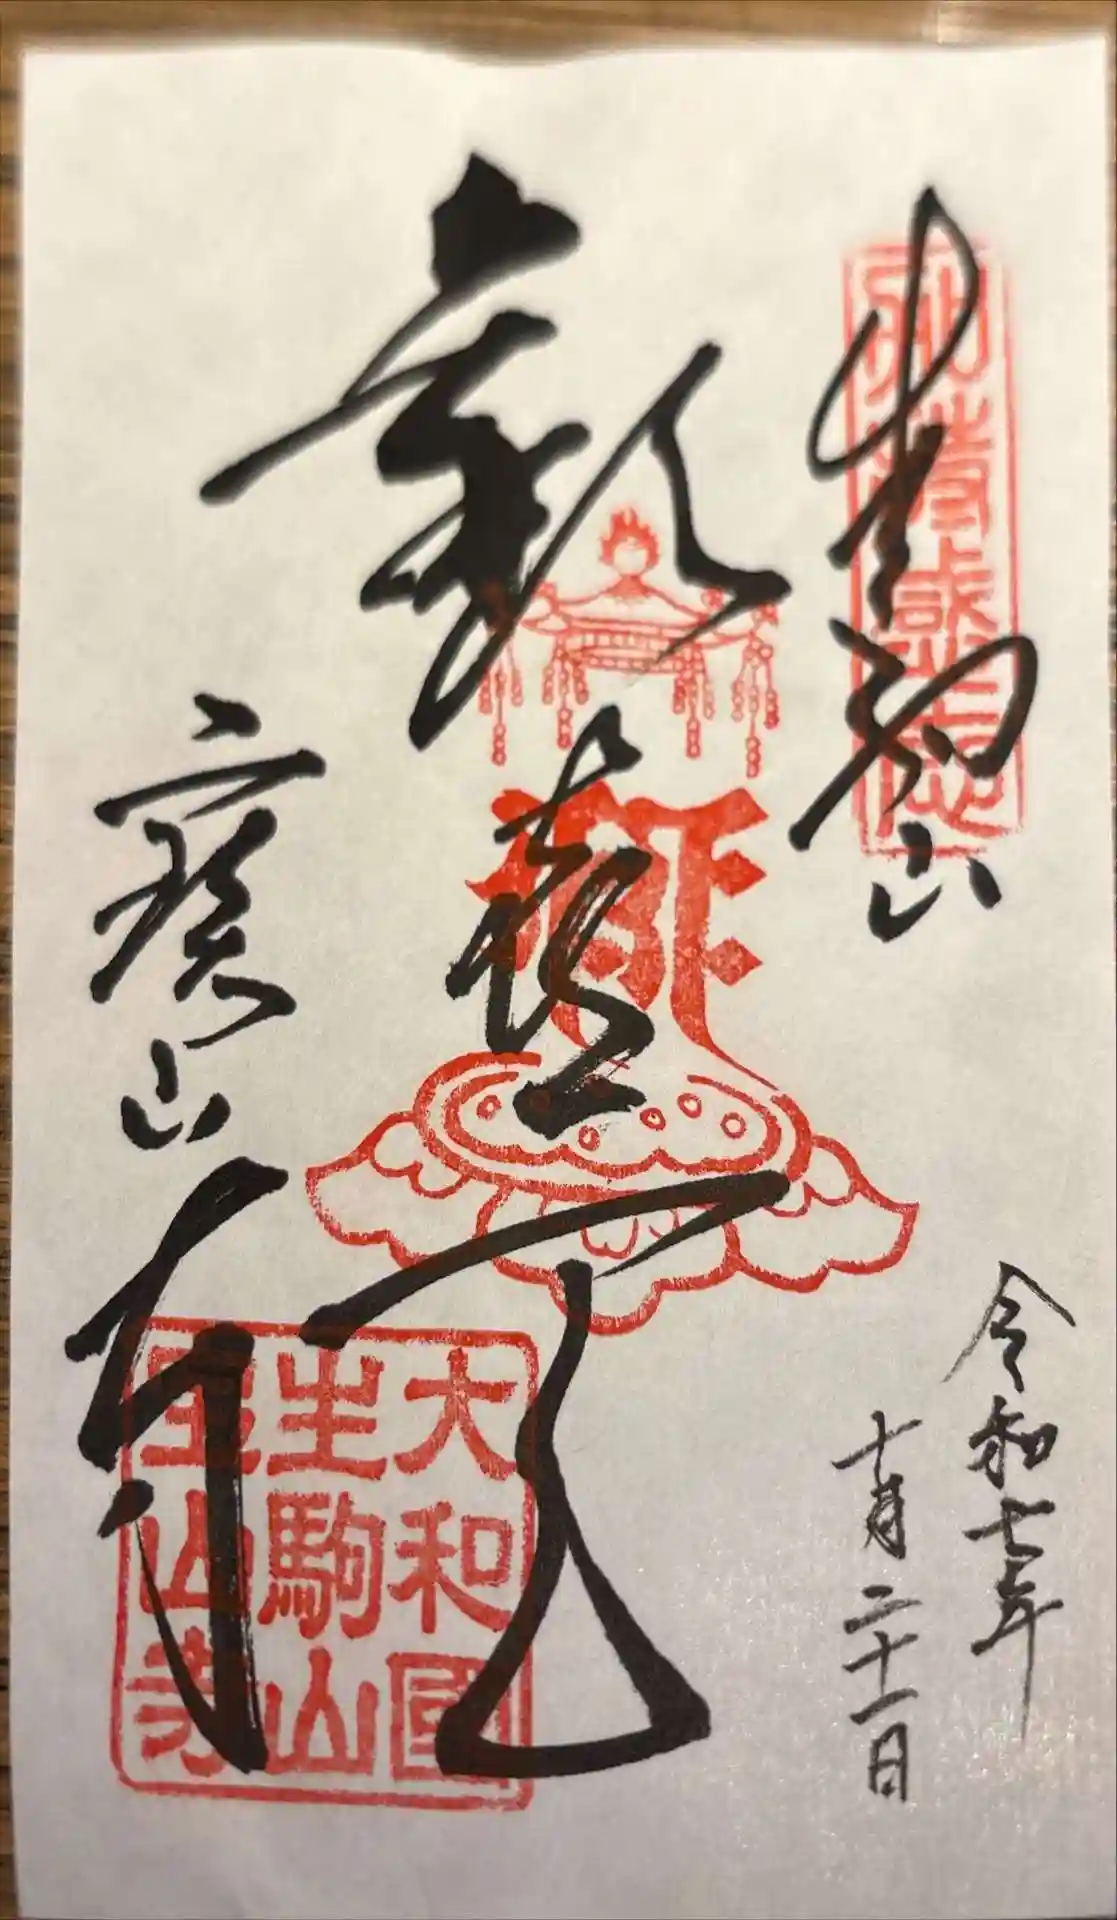 生駒山
歡喜天
寶山寺
令和七年
十月二十一日
大和國
生駒山
宝山寺